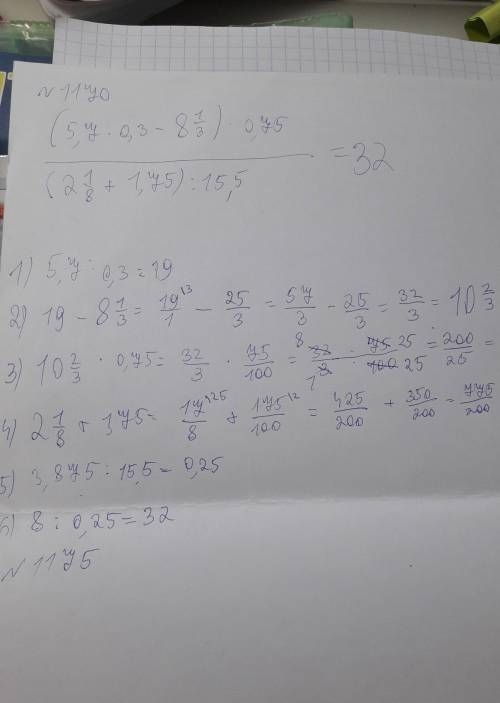 № 1170
(5,7 · 0,3 - 8 1/3) · 0,75
(2 1/8 + 1,75) : 15,5
= 32
1) 5,7 : 0,3 = 19
2) 19 - 8 1/3 = 19/1 - 25/3 = 57/3 - 25/3 = 32/3 = 10 2/3
3) 10 2/3 · 0,75 = 32/3 · 75/100 = 32 · 75 25 / 3 · 100 25 = 200/25 =
4) 2 1/8 + 1,75 = 17/8 + 175/100 = 425/200 + 350/200 = 775/200
5) 3,875 : 15,5 = 0,25
6) 8 : 0,25 = 32
№ 1175